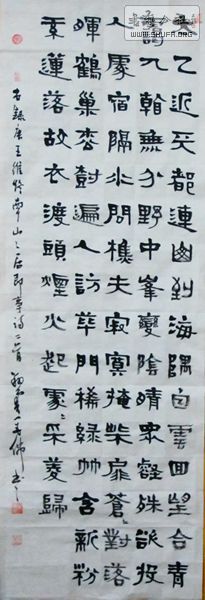 WWW.SHUFA.ORG
太乙近天都連山到海隅白雲回望合青
靄入看無分野中峯變陰晴眾壑殊欲投
人處宿隔水問樵夫寂寞掩柴扉蒼〻對落
暉鶴巢松樹遍人訪蓽門稀綠竹含新粉
紅蓮落故衣渡頭煙火起處〻采菱歸
右錄唐王維終南山山居即事詩二首